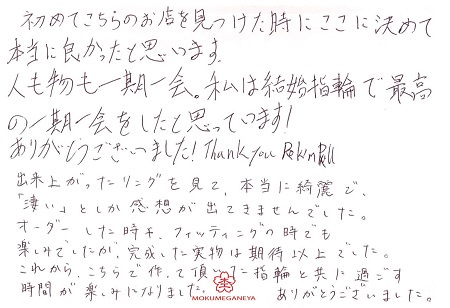 初めてこちらのお店を見つけた時にここに決めて
本当に良かったと思います。
人も物も一期一会。私は結婚指輪で最高
の一期一会をしたと思っています!
ありがとうございました! Thank you
出来上がったリングを見て、本当に綺麗で、
「凄い」としか感想が出てきませんでした。
オーダーした時も、フィッティングの時でも
楽しみでしたが、完成した実物は期待以上でした。
これから、こちらで作って頂いた指輪と共に過ごす
時間が楽しみになりました。 ありがとうございました。
MOKUMEGANEYA